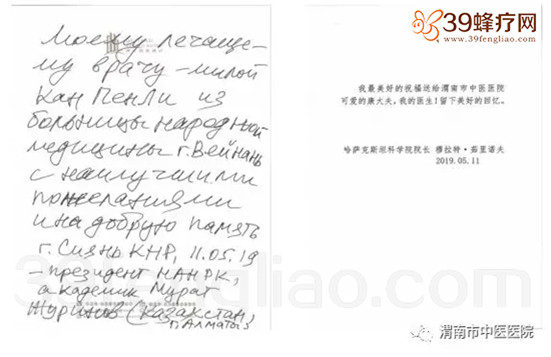 39蜂疗网
www.39fengliao.com
Моему лечаще-
му врачу - милой
Кан Пенли из
больницы народной
медицины г. Вейнань
с наилучшими
пожеланиями
и на добрую память
г. Сиянь КНР, 11.05.19
- президент НАНРК,
академик Мурат
Журинов (Казахстан,
г. Алматы)
我最美好的祝福送给渭南市中医医院
可爱的康大夫,我的医生!留下美好的回忆。
哈萨克斯坦科学院院长 穆拉特·茹里诺夫
2019.05.11
39fengliao.com
渭南市中医医院